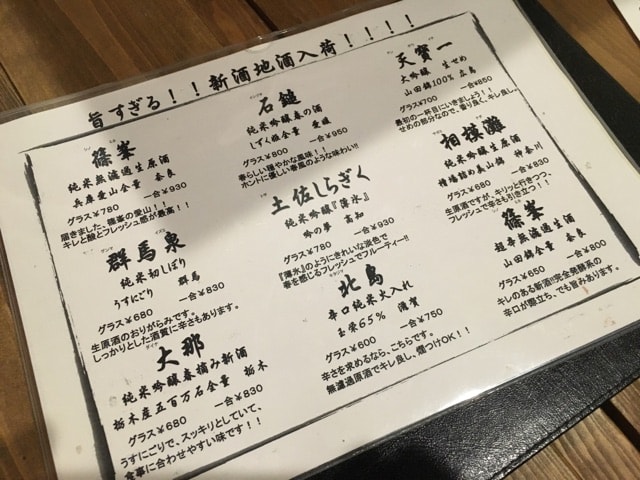 旨すぎる！！新酒地酒入荷！！！！
篠峯
純米無濾過生原酒
兵庫愛山全量 奈良
グラス￥780 一合￥930
届きました、篠峯の愛山！！
キレと酸とフレッシュ感が最高！！
群馬泉
純米初しぼり
うすにごり 群馬
グラス￥680 一合￥830
生原酒のおりがらみです。
しっかりとした酒質に辛さもあります。
大那
純米吟醸春摘み新酒
栃木産五百万石全量 栃木
グラス￥680 一合￥830
うすにごりで、スッキリとしていて、
食事に合わせやすい味です！！
石鎚
純米吟醸春の酒
しずく雄全量 愛媛
グラス￥800 一合￥950
春らしい穏やかな風味！！
ホントに優しい春風のような味わい!!
土佐しらぎく
純米吟醸『薄氷』
吟の夢 高知
グラス￥780 一合￥930
『薄氷』のようにきれいな淡色で
春を感じるフレッシュでフルーティー!!
北島
辛口純米火入れ
玉栄65% 滋賀
グラス￥600 一合￥750
辛さを求めるなら、こちらです。
無濾過原酒でキレ良し、燗つけOK！！
天寳一
大吟醸 生せめ
山田錦100% 広島
グラス￥700 一合￥850
最初の一杯目にいきましょう！！
せめの部分なので、香り良く、キレ良し。
相模灘
純米吟醸生原酒
槽場詰め美山錦 神奈川
グラス￥680 一合￥830
生原酒ですが、キリッと行きつつ、
フレッシュで辛さも引き立つ！！
篠峯
超辛無濾過生酒
山田錦全量 奈良
グラス￥650 一合￥800
キレのある新酒!!完全発酵系の
辛口が際立ち、でも旨みあります。